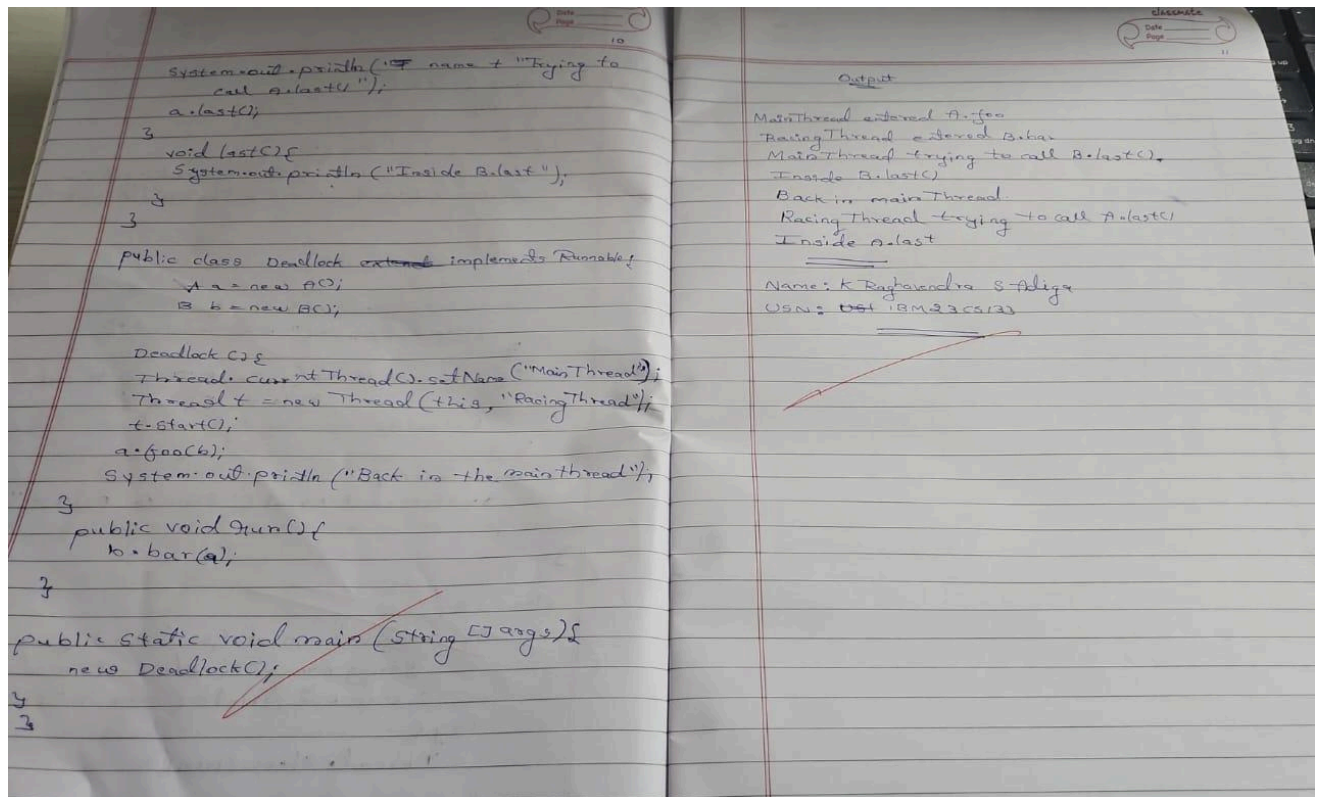 Date
Page
10
System.out.println(" name + "Trying to
call A.last()");
a.last();
}
void last() {
System.out.println("Inside B.last");
}
}
public class Deadlock implements Runnable{
A a = new A();
B b = new B();
Deadlock () {
Thread.currentThread().setName("MainThread");
Thread t = new Thread(this, "RacingThread");
t.start();
a.foo(b);
System.out.println("Back in the main thread");
}
public void run() {
b.bar(a);
}
public static void main (String [] args) {
new Deadlock();
}
}
classmate
Date
Page
11
Output
MainThread entered A.foo
Racing Thread entered B.bar
MainThread trying to call B.last().
Inside B.last()
Back in main Thread.
Racing Thread trying to call A.last()
Inside A.last
Name: K Raghavendra S Adiga
USN: 1BM23CS133